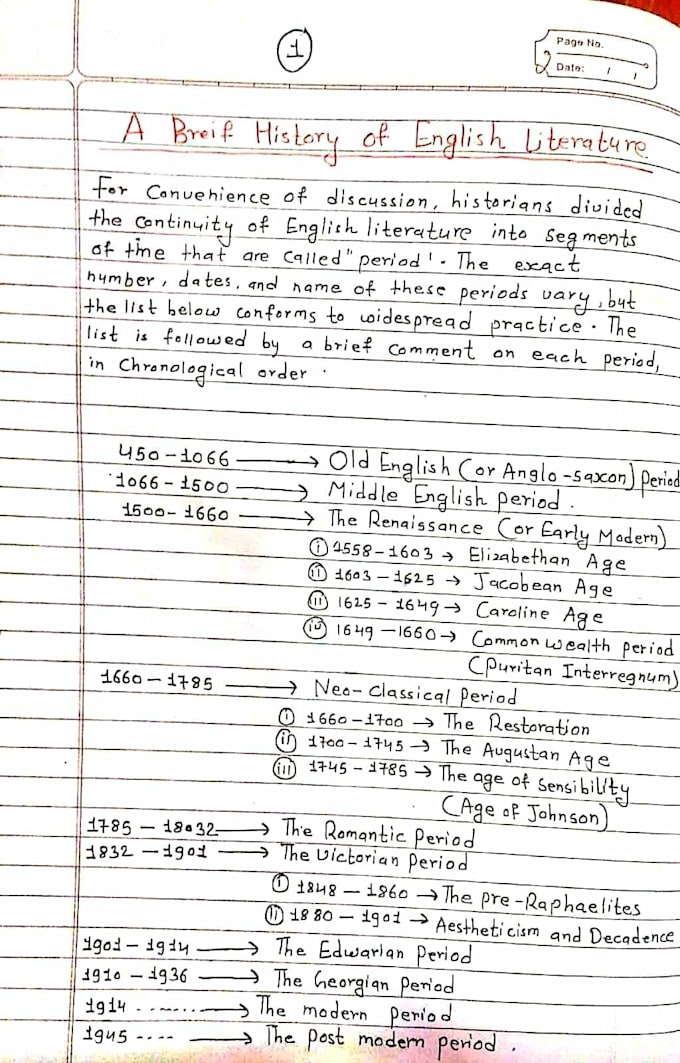 1
Page No.
Date: / /
A Breif History of English Literature
For Convenience of discussion, historians divided
the continuity of English literature into segments
of time that are called "period'. The exact
number, dates, and name of these periods vary, but
the list below conforms to widespread practice. The
list is followed by a brief comment on each period,
in Chronological order.
450-1066 → Old English (or Anglo-saxon) Period
1066-1500 → Middle English period.
1500-1660 → The Renaissance (or Early Modern)
(i) 1558-1603 → Elizabethan Age
(ii) 1603-1625 → Jacobean Age
(iii) 1625-1649 → Caroline Age
(iv) 1649-1660 → Common wealth period
(Puritan Interregnum)
1660-1785 → Neo-Classical Period
(i) 1660-1700 → The Restoration
(ii) 1700-1745 → The Augustan Age
(iii) 1745-1785 → The age of Sensibility
(Age of Johnson)
1785-18032 → The Romantic Period
1832-1901 → The Victorian Period
(i) 1848-1860 → The pre-Raphaelites
(ii) 1880-1901 → Aestheticism and Decadence
1901-1914 → The Edwarian Period
1910-1936 → The Georgian Period
1914 ......... → The modern period
1945 .... → The Post modern period.